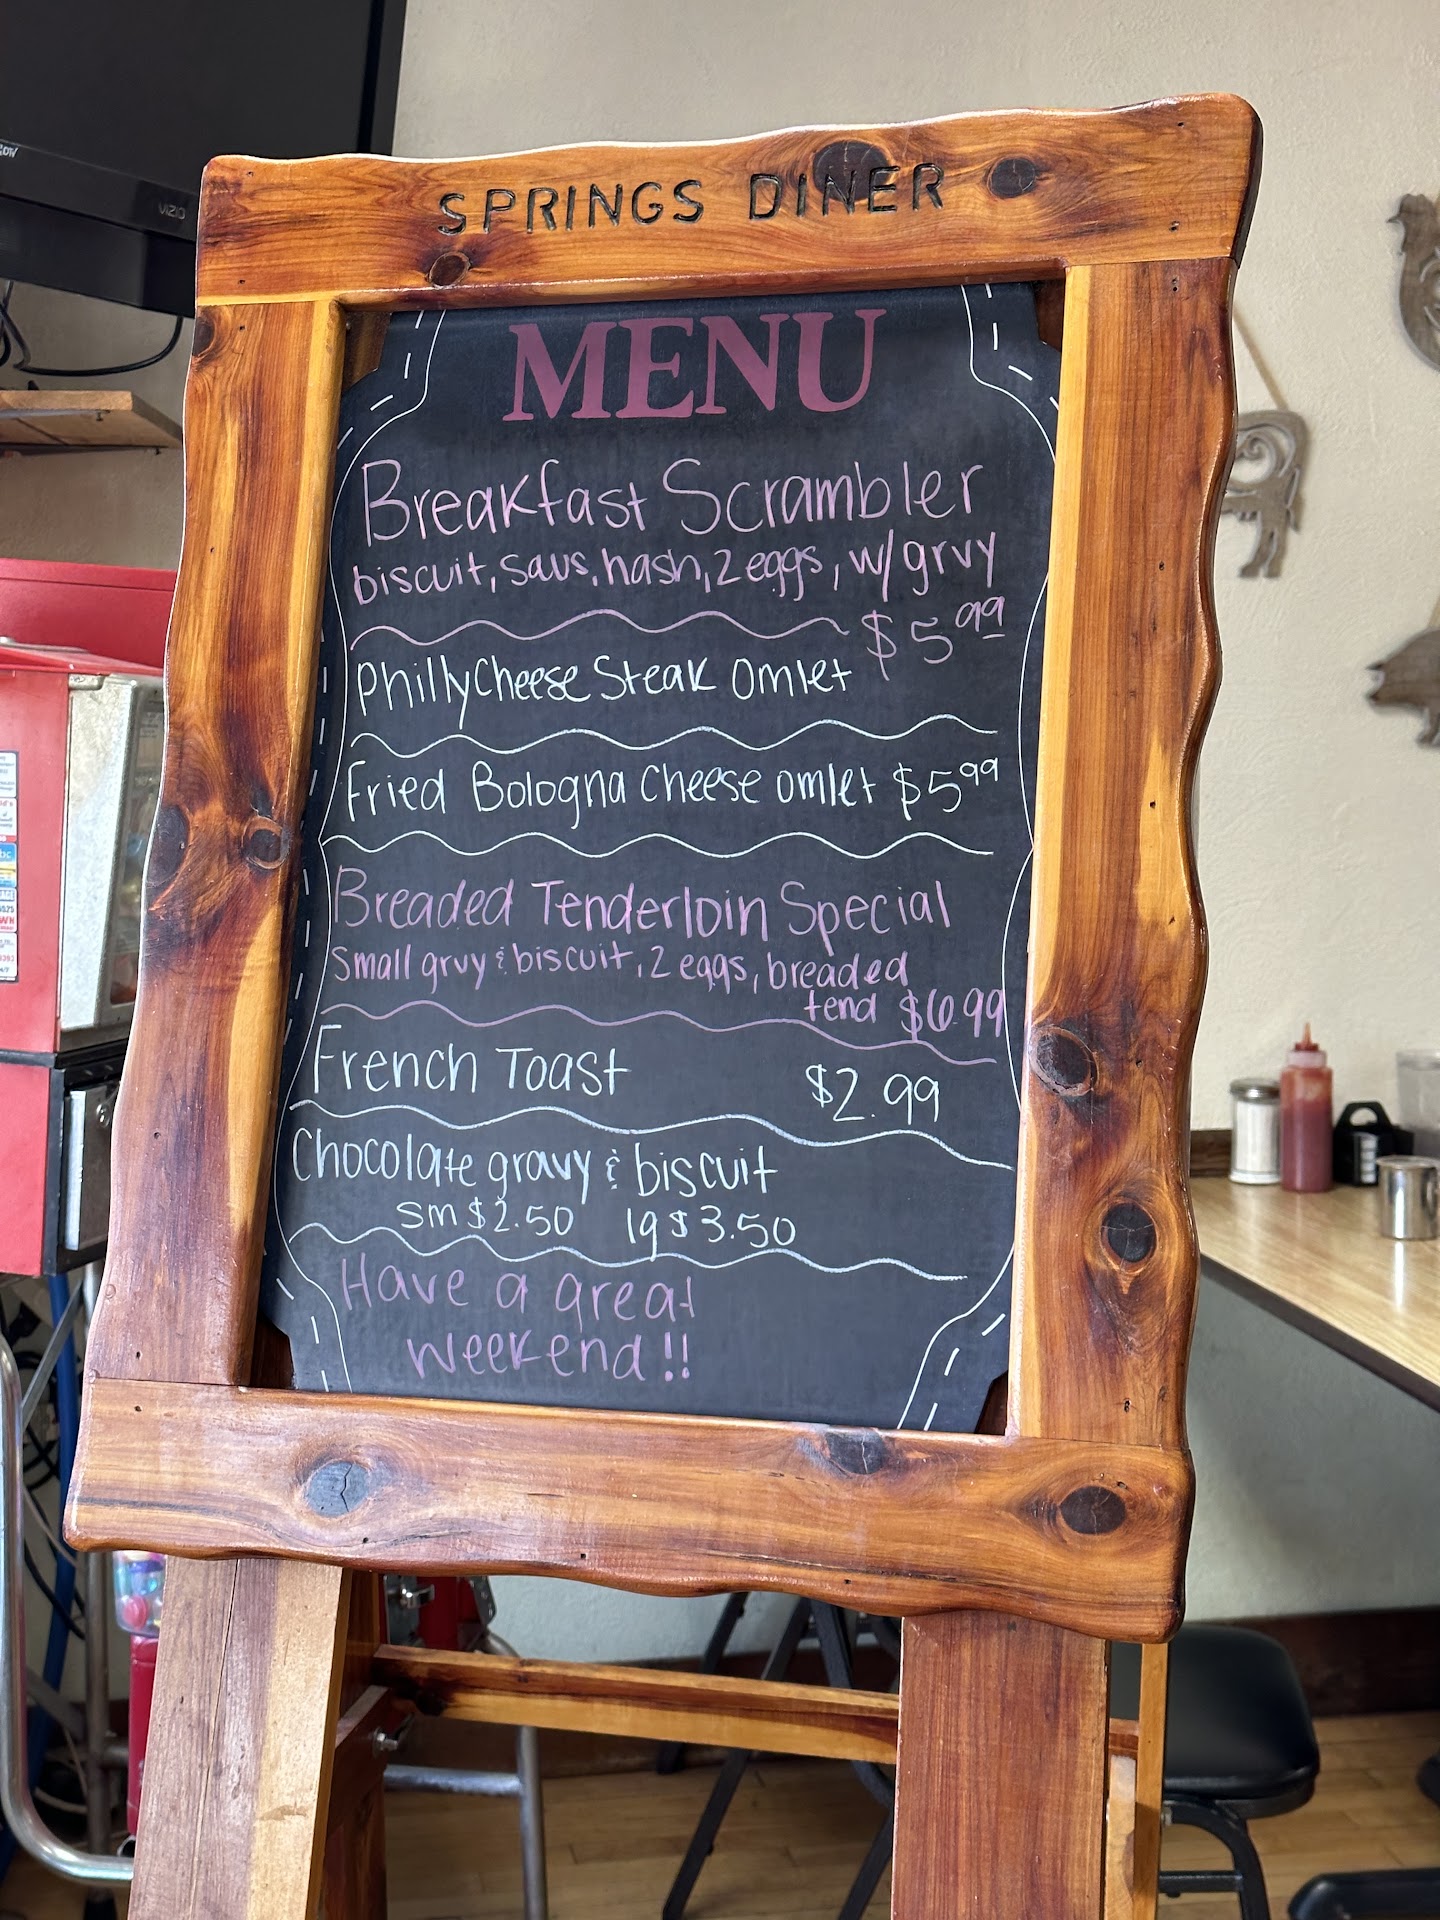 SPRINGS DINER
MENU
Breakfast Scrambler
biscuit, saus, hash, 2 eggs, w/ grvy
$5.99
Philly Cheese Steak Omlet
Fried Bologna Cheese omlet $5.99
Breaded Tenderloin Special
Small grvy & biscuit, 2 eggs, breaded
tend $6.99
French Toast $2.99
Chocolate gravy & biscuit
sm $2.50 lg $3.50
Have a great
weekend!!
VIZIO